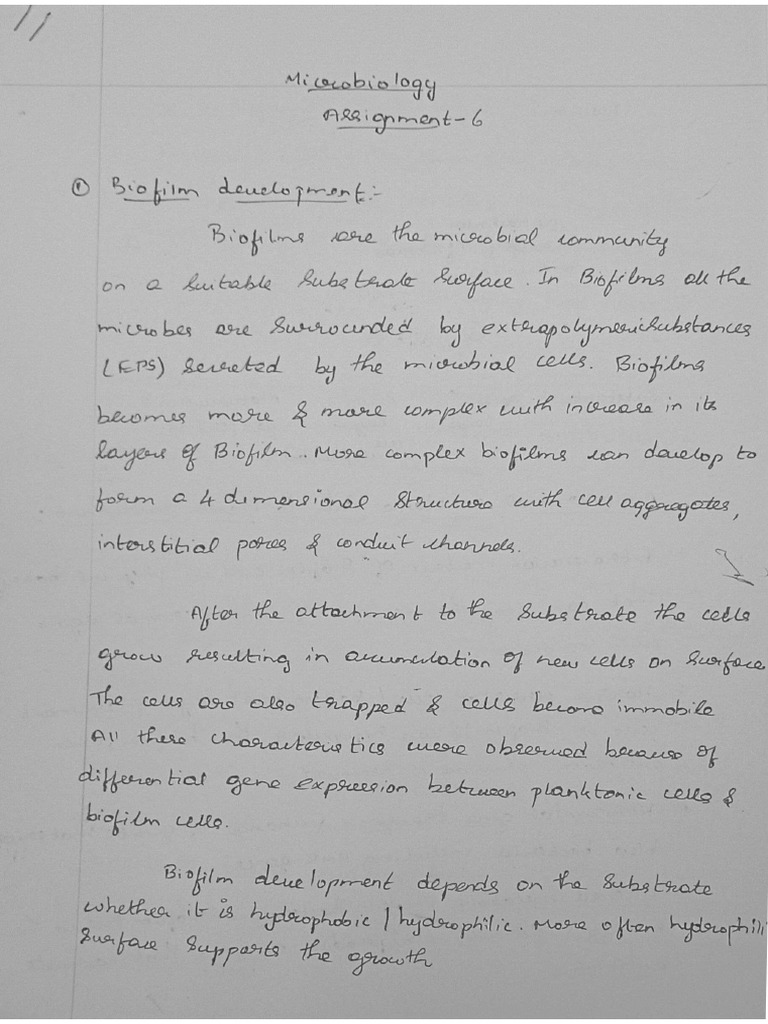 Microbiology
Assignment-6
① Biofilm development:-
Biofilms are the microbial community
on a suitable substrate surface. In Biofilms all the
microbes are surrounded by extrapolymericsubstances
(EPS) secreted by the microbial cells. Biofilms
becomes more & more complex with increase in its
layers of Biofilm. More complex biofilms can develop to
form a 4 dimensional structure with cell aggregates,
interstitial pores & conduit channels.
After the attachment to the substrate the cells
grow resulting in accumulation of new cells on surface
The cells are also trapped & cells become immobile
All these characteristics were observed because of
differential gene expression between planktonic cells &
biofilm cells.
Biofilm development depends on the substrate
whether it is hydrophobic / hydrophilic. More often hydrophili
surface supports the growth